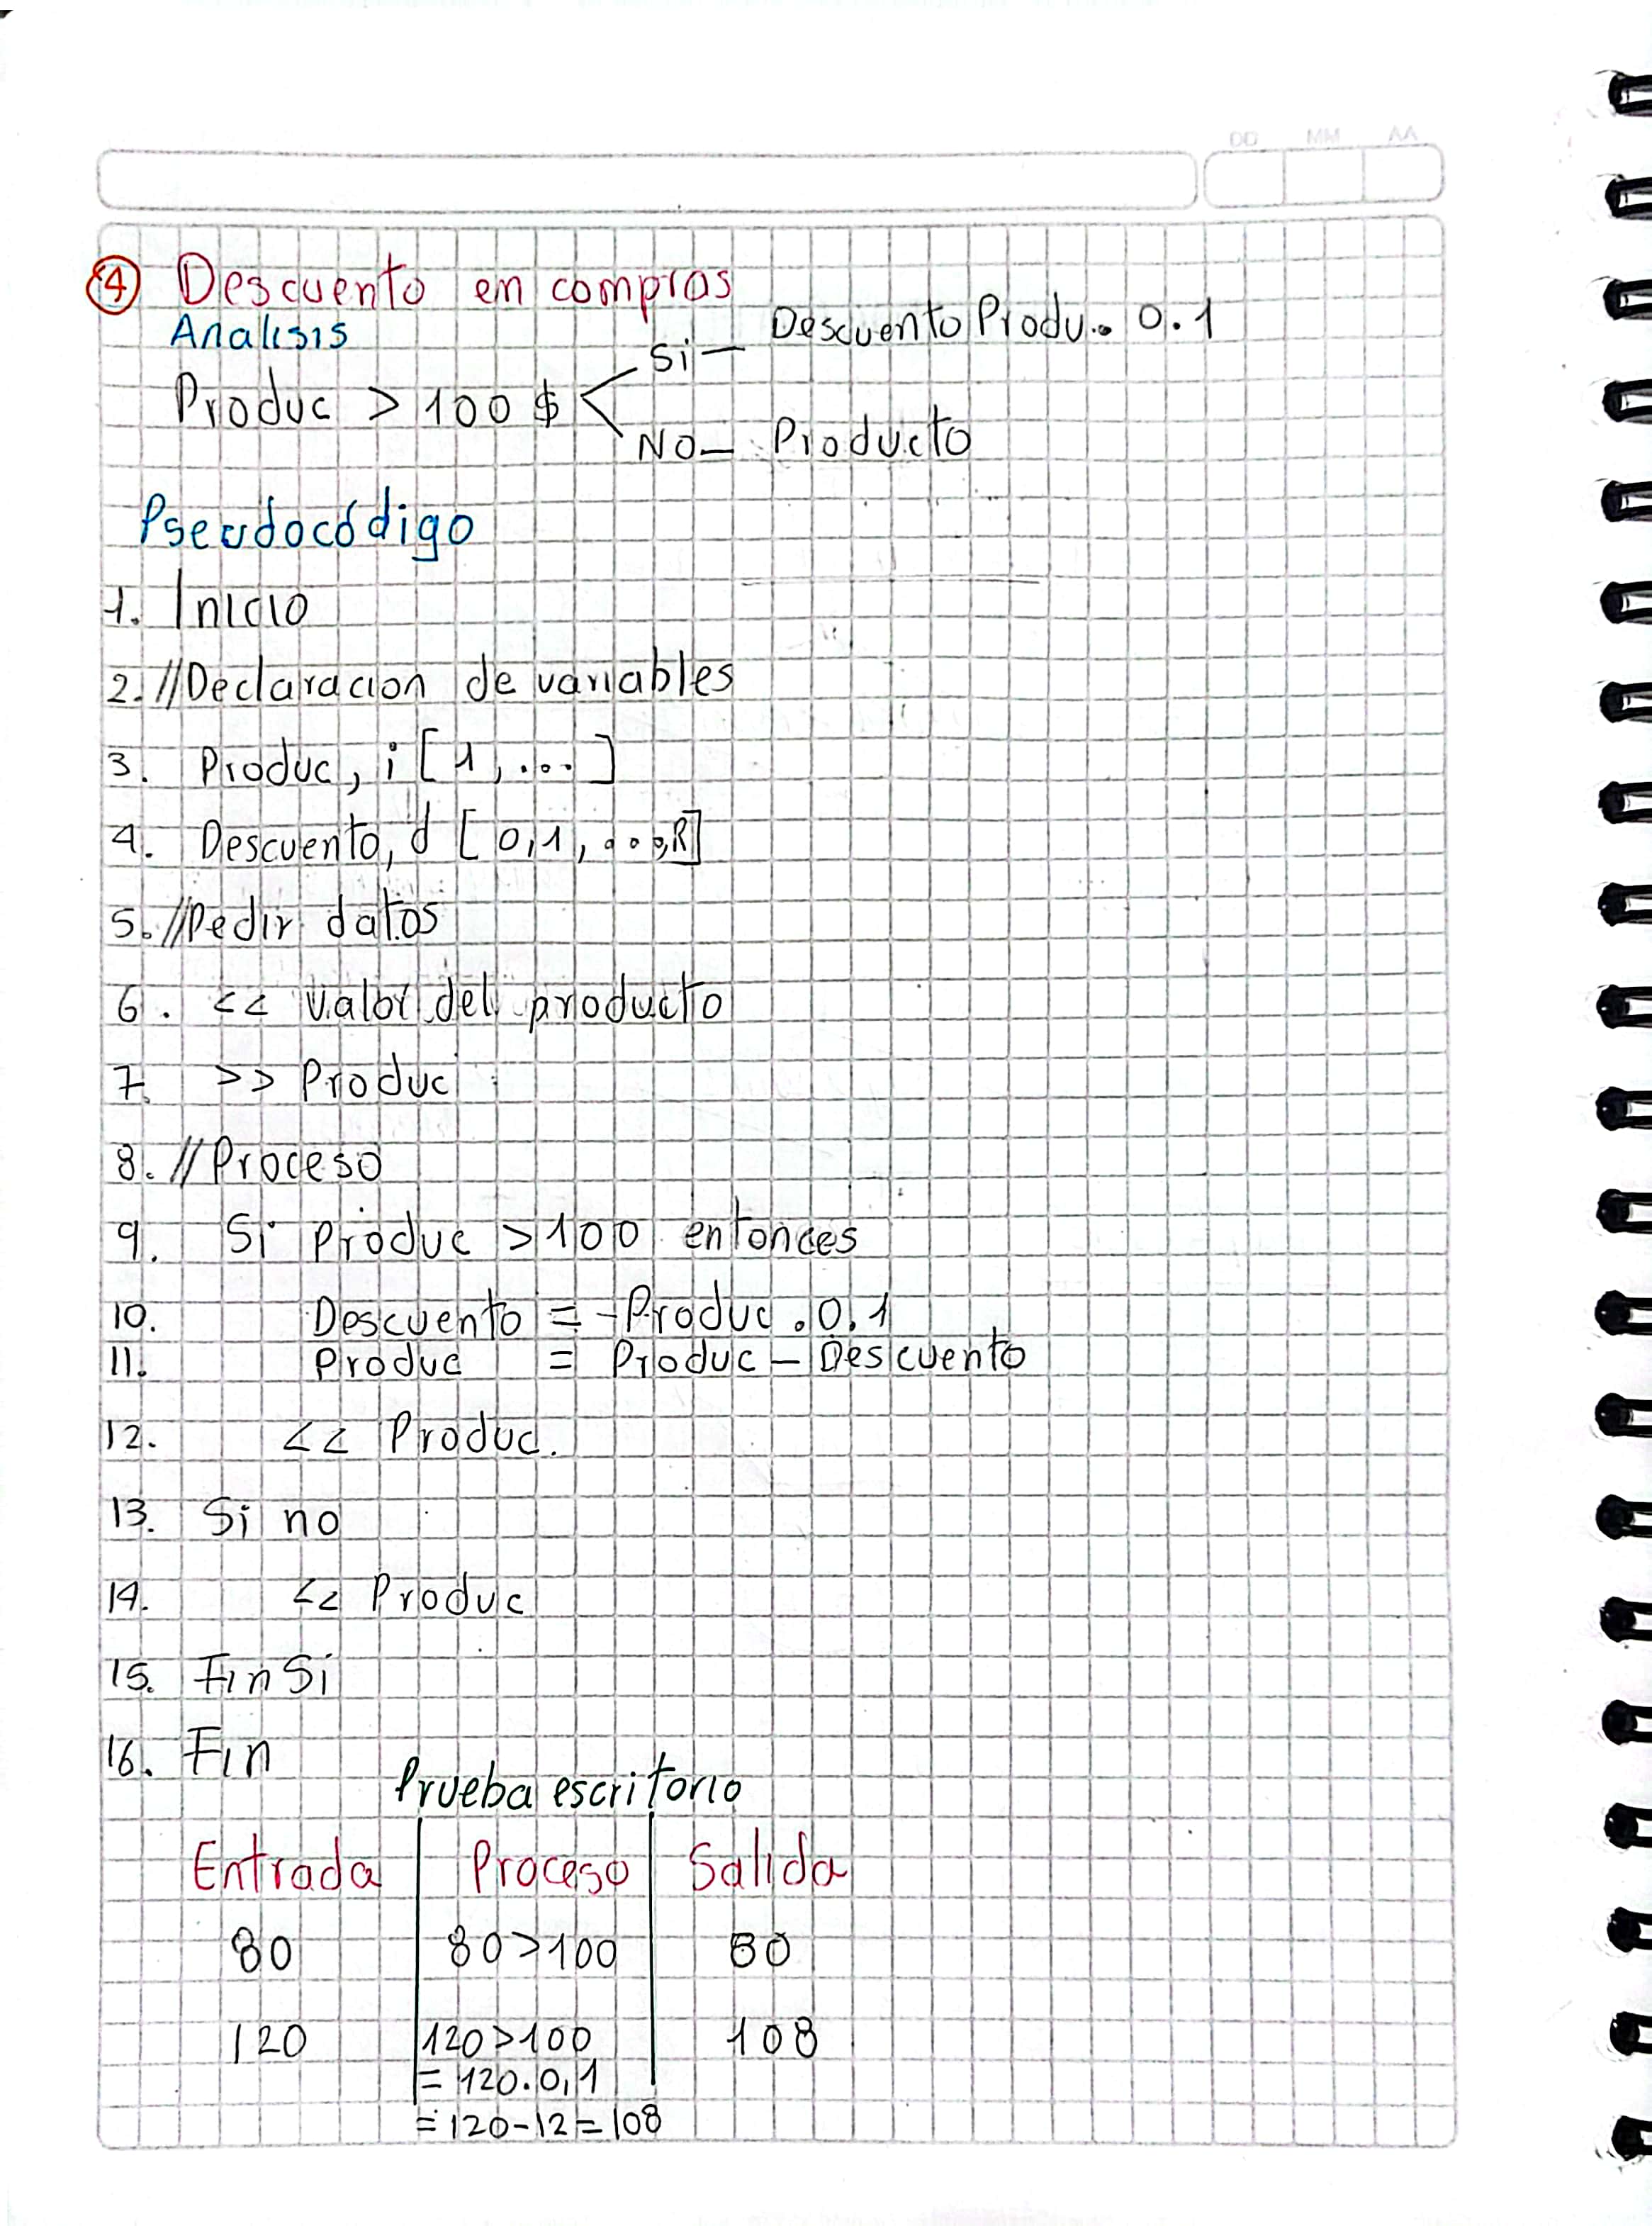 DD MM AA
4 Descuento en compras
Analisis
Si — Descuento Produ. . 0.1
Produc > 100 $
NO — Producto
Pseudocódigo
1. Inicio
2. //Declaracion de variables
3. Produc, i [1, ...]
4. Descuento, d [0,1, ...,R]
5. //Pedir datos
6. << Valor del producto
7. >> Produc
8. //Proceso
9. Si Produc > 100 entonces
10. Descuento = -Produc . 0.1
11. Produc = Produc - Descuento
12. << Produc.
13. Si no
14. << Produc
15. FinSi
16. Fin
Prueba escritorio
Entrada Proceso Salida
80 80>100 80
120 120>100 108
= 120.0,1
= 120-12=108